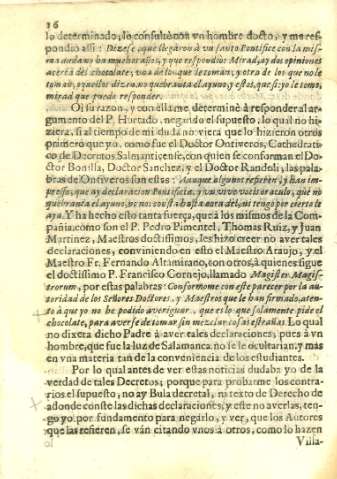 16
lo determinado, lo consulte con vn hombre docto, y me res-
pondio assi: Dizese, que llegaron à vn santo Pontifice con la mis-
ma duda no ha muchos años, y que respondiò: Mirad, ay dos opiniones
acerca del chocolate, vna de los que le toman, y otra de los que no le
toman, y aquellos dizen no quebranta el ayuno, y estos, que si: yo le tomo,
mirad que puedo responder.
Oì su razon, y con ella me determinè à responder al ar-
gumento del P. Hurtado, negando el supuesto, lo qual no hi-
ziera, si al tiempo de mi duda no viera que lo hizieron otros
primero que yo, como fue el Doctor Ontiveros, Cathedrati-
co de Decretos Salmanticense, con quien se conforman el Do-
ctor Bonilla, Doctor Sanchez, y el Doctor Randoli, las pala-
bras de Ontiveros son estas: Aunque algunos refieren
preso, que ay declaracion Pontificia, y vn vivo vocis oraculo, què no
quebranta el ayuno, no me consta hasta aora del, ni tengo por cierto le
aya. Y ha hecho esto tanta fuerça, que à los mismos de la Com-
pañia, como son el P. Pedro Pimentel, Thomas Ruiz, y Juan
Martinez, Maestros doctissimos, les hizo creer no aver tales
declaraciones, conviniendo en esto el Maestro Araujo, y el
Maestro Fr. Fernando Altamirano, con otros, à quienes sigue
el doctissimo P. Francisco Cornejo, llamado Magister Magis-
trorum, por estas palabras: Conformome con este parecer por la au-
toridad de los Señores Doctores, y Maestros que le han firmado, aten-
to à que yo no he podido averiguar, que es lo que solamente pide el
chocolate, para averse de tomar sin mezclar cosas estrañas. Lo qual
no dixera dicho Padre à aver tales declaraciones, pues à vn
hombre, que fue la luz de Salamanca no se le ocultarian, y mas
en vna materia tan de la conveniencia de los estudiantes.
Por lo qual antes de ver estas noticias dudaba yo de la
verdad de tales Decretos; porque para probarme los contra-
rios el supuesto, no ay Bula decretal, ni texto de Derecho de
adonde conste las dichas declaraciones, y este no averlas, ten-
go yo por fundamento para negarlo, y ver, que los Autores
que las refieren, se vàn citando vnos à otros, como lo hazen
Villa-